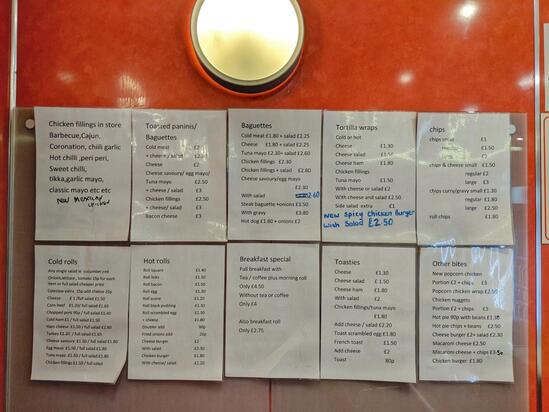 Chicken fillings in store
Barbecue,Cajun,
Coronation, chilli garlic
Hot chilli ,peri peri,
Sweet chilli,
tikka,garlic mayo,
classic mayo etc etc
New Mexican
chicken
Toasted paninis/
Baguettes
Cold meat £2
+ cheese / salad
Cheese
Cheese savoury/ egg mayo/
Tuna mayo £2.50
+ cheese/ salad £3
Chicken fillings £2.50
+ cheese/ salad £3
Bacon cheese £3
Baguettes
Cold meat £1.80 + salad £2.25
Cheese £1.80 + salad £2.25
Tuna mayo £2.30 + salad £2.60
Chicken fillings £2.30
Chicken fillings + salad £2.60
Cheese savoury/egg mayo
£2.30
With salad £2.60
Steak baguette +onions £3.50
With gravy £3.80
Hot dog £1.80 + onions £2
Tortilla wraps
Cold or hot
Cheese £1.30
Cheese salad £1.50
Cheese ham £1.80
Chicken fillings
Tuna mayo £1.50
With cheese or salad £2
With cheese and salad £2.50
Side salad extra £1
New spicy chicken Burger
With Salad £2.50
chips
chips small £1
£1.50
£2
chips & cheese small £1.50
regular £2
large £3
chips curry/gravy small £1.30
regular £2
large £2.50
roll chips £1.80
Cold rolls
Any single salad ie cucumber,red
Onion,lettuce , tomato 15p for each
Item or full salad cheaper price
Coleslaw extra 15p add cheese 20p
Cheese £1 /full salad £1.50
Corn beef £1.20/ full salad £1.65
Chopped pork 90p / full salad £1.40
Cold ham £1 / full salad £1.50
Ham cheese £1.50 / full salad £1.80
Turkey £1.20 / full salad £1.65
Cheese savoury £1.50 / full salad £1.80
Egg mayo £1.50 / full salad £1.80
Tuna mayo £1.50 / full salad £1.80
Chicken fillings £1.50 / full salad
Hot rolls
Roll square £1.40
Roll links £1.50
Roll bacon £1.50
Roll egg £1.30
Roll scone £1.20
Roll black pudding £1.30
Roll scrambled egg £1.30
+ cheese £1.80
Doubler add 90p
Fried onions add 20p
Cheese Burger £2
With salad £2.30
Chicken burger £1.80
With cheese/ salad £2.20
Breakfast special
Full breakfast with
Tea / coffee plus morning roll
Only £4.50
Without tea or coffee
Only £4
Also breakfast roll
Only £2.75
Toasties
Cheese £1.30
Cheese salad £1.50
Cheese ham £1.80
With salad £2
Chicken fillings/tuna mayo
£1.80
Add cheese / salad £2.20
Toast scrambled egg £1.80
French toast £1.50
Add cheese £2
Toast 80p
Other bites
New popcorn chicken
Portion £2 + chips £3
Popcorn chicken wrap £2.50
Chicken nuggets
Portion £2 + chips £3
Hot pie 90p with beans £1.30
Hot pie chips + beans £2.50
Cheese burger £2+ salad £2.30
Macaroni cheese £2.50
Macaroni cheese + chips £3.50
Chicken burger £1.80